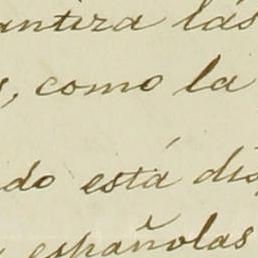 antiza lás
, como la
do está dis
españolas